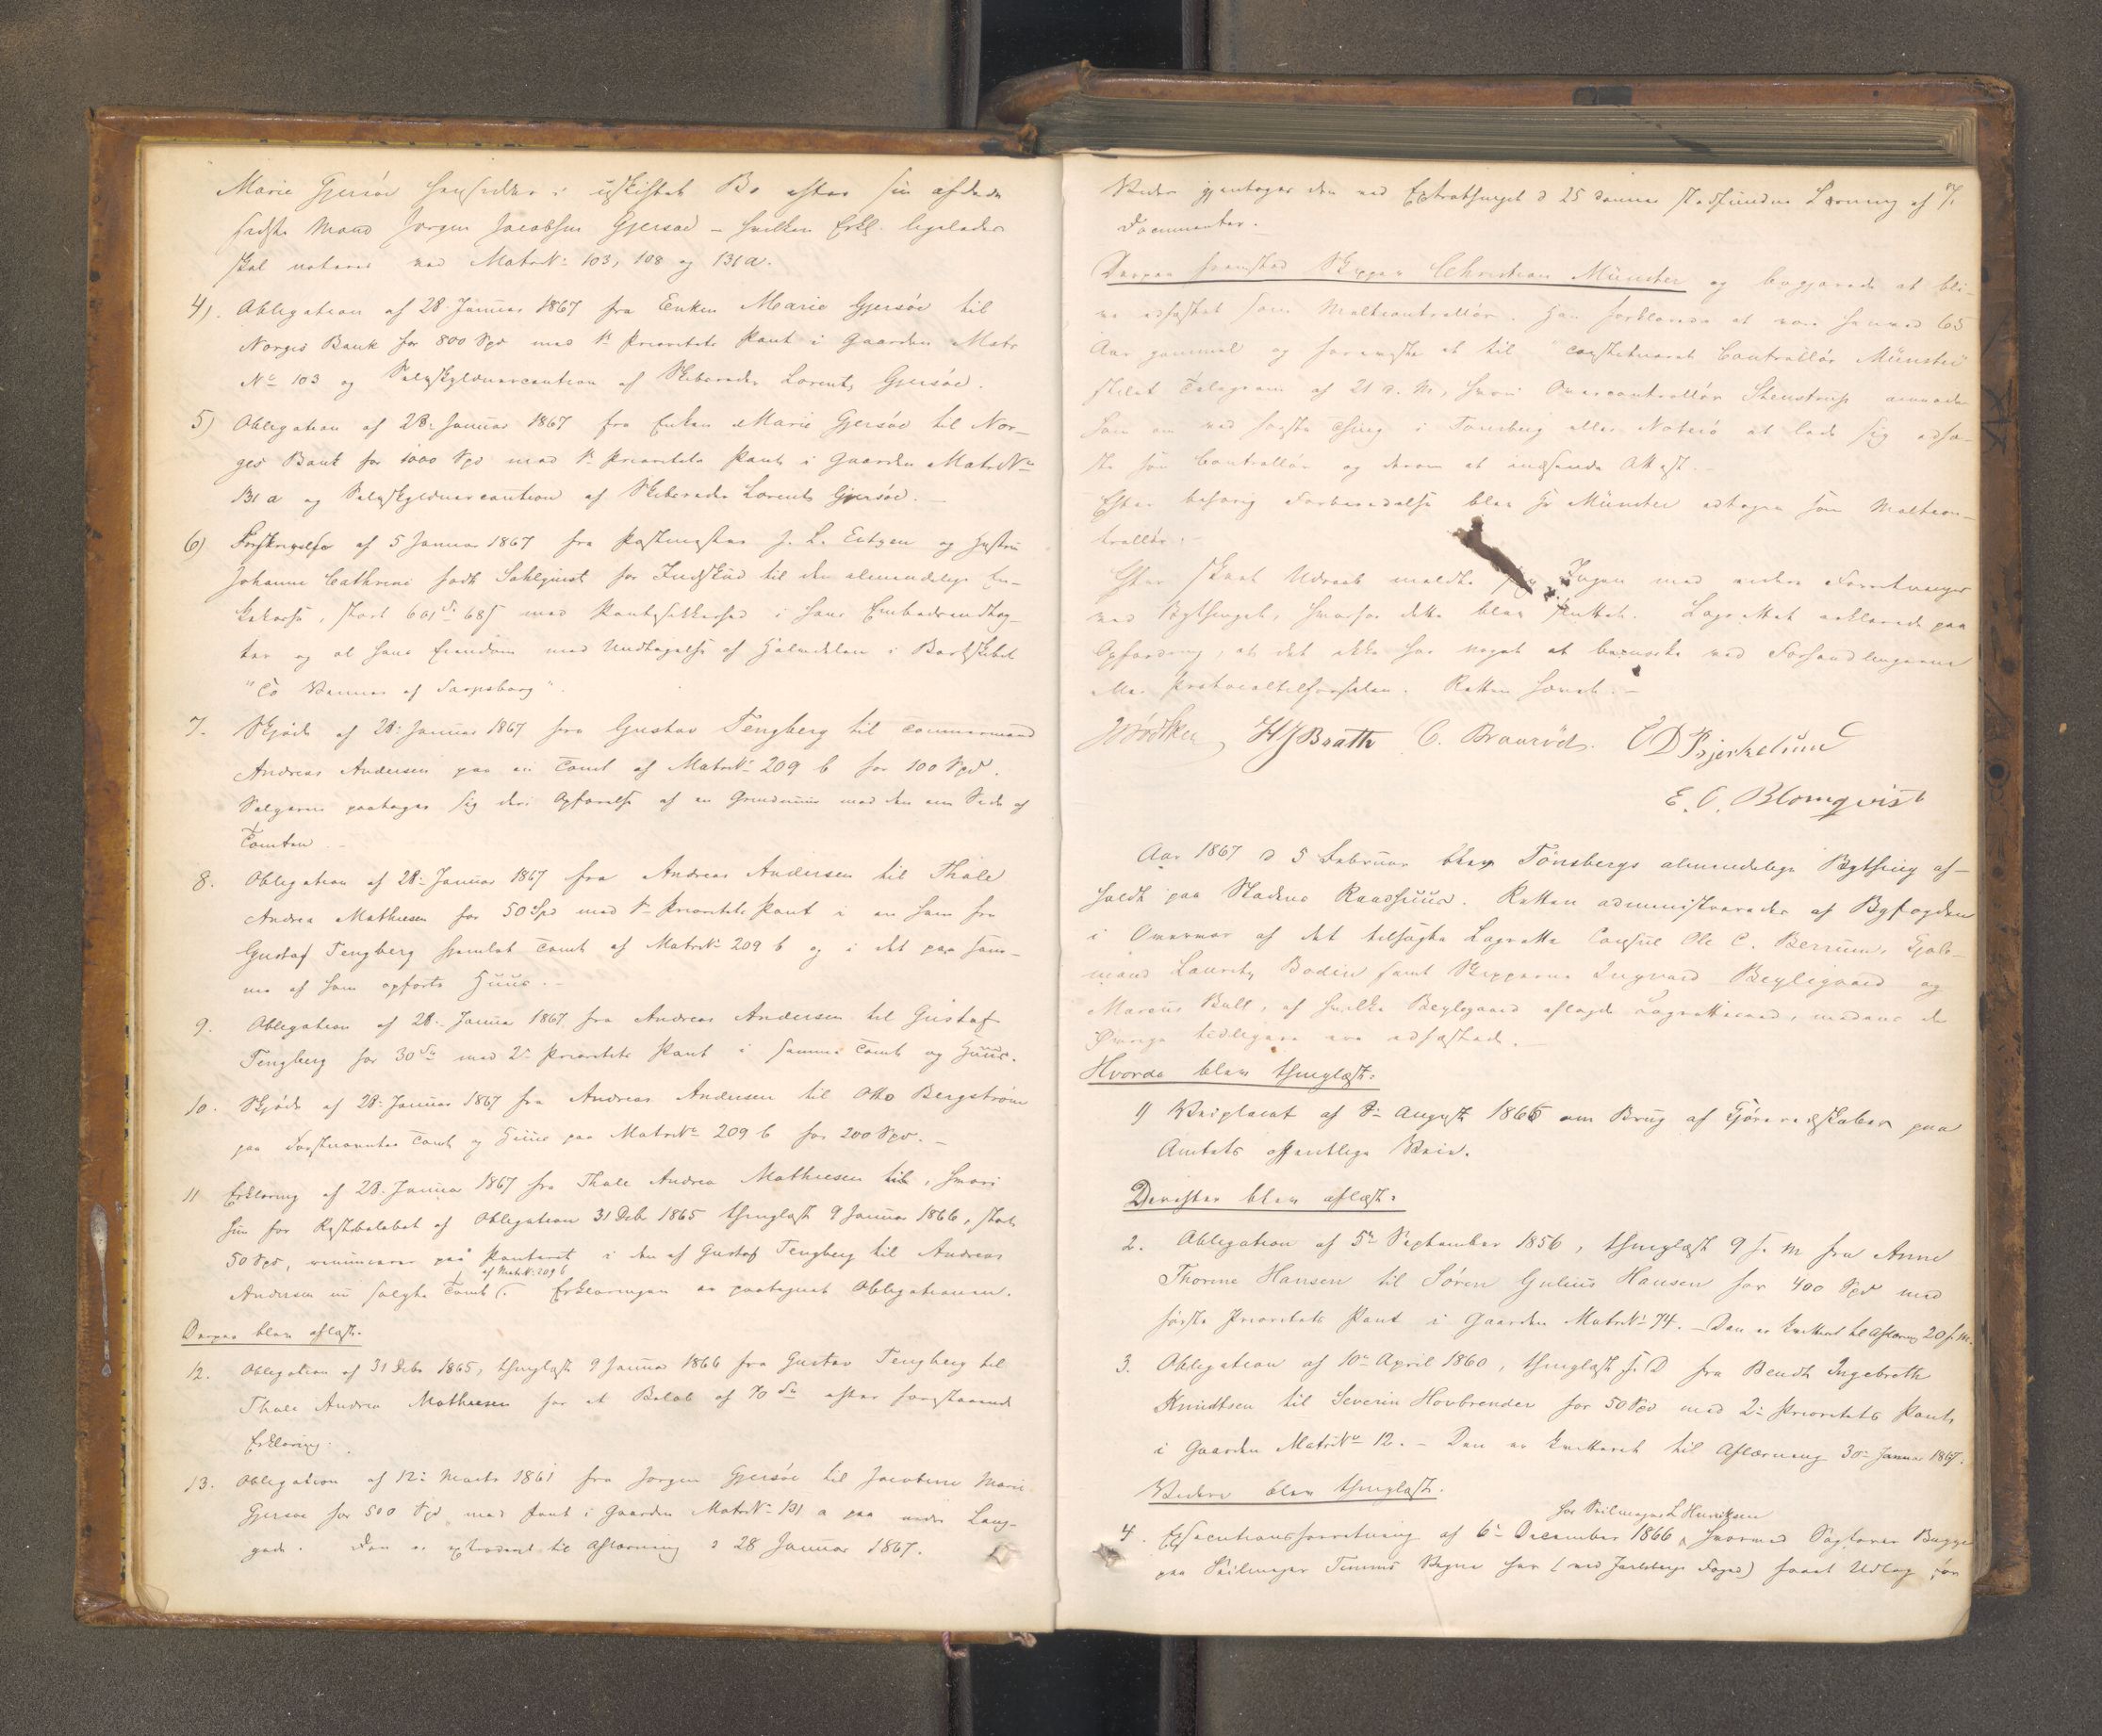 Marie Gjersøe hensidder i uskiftet Bo efter sin afdøde
sidste Mand Jørgen Jacobsen Gjersøe – hvilken Erkl. ligeledes
skal noteres ved MatrN: 103, 108 og 131a.
4). Obligation af 28 Januar 1867 fra Enken Marie Gjersøe til
Norges Bank for 800 Spd med 1st Prioritets Pant i Gaarden Matr
No 103 og Selvskyldnercaution af Skibsreder Lorents Gjersøe.
5) Obligation af 28: Januar 1867 fra Enken Marie Gjersøe til Nor-
ges Bank for 1000 Spd med 1s Prioritets Pant i Gaarden MatrNo
131 a og Selvskyldnercaution af Skibsreder Lorents Gjersøe. –
6) Forskrivelse af 5 Januar 1867 fra Postmester J. L. Eitzen og Hustru
Johanne Cathrine født Sahlquist for Indskud til den almindelige En-
kekasse, stort 601 68 med Pantesikkerhed i hans Embedsindtæg-
ter og al hans Eiendom med Undtagelse af Halvdelen i Bartskibet
"To Venner af Sarpsborg".
7. Skjøde af 28: Januar 1867 fra Gustav Tengberg til Tømmermand
Andreas Andersen paa en Tomt af MatrN: 209 b for 100 Spd.
Sælgeren paatager sig den Opførelse af en Grundmuur med den ene Side af
Tomten –
8. Obligation af 28: Januar 1867 fra Andreas Andersen til Thale
Andrea Mathiesen for 50 Spd med 1s Prioritets Pant i en ham fra
Gustaf Tengberg hjemlet Tomt af MatrN: 209 b og i det paa sam-
me af ham opførte Huus. –
9. Obligation af 28: Januar 1867 fra Andreas Andersen til Gustaf
Tengberg for 30 Spd med 2: Prioritets Pant i samme Tomt og Huus.
10. Skjøde af 28: Januar 1867 fra Andreas Andersen til Otto Bergstrøm
paa Forstnævnte Tomt og Huus paa MatrNo 209 b for 200 Spd. –
11 Erklæring af 28. Januar 1867 fra Thale Andrea Mathiesen til, hvori
hun for Restbeløbet af Obligation 31 Decbr 1865 thinglæst 9 Januar 1866, stor
50 Spd, renuncerer paa Panteret i den af Gustaf Tengberg til Andreas
af MatrN: 209 b
Andersen nu solgte Tomt. Erklæringen er paategnet Obligationen.
Derpaa blev aflæst.
12. Obligation af 31 Decbr 1865, thinglæst 9 Januar 1866 fra Gustav Tengberg til
Thale Andrea Mathiesen for et Beløb af 70 Spd efter foranstaaende
Erklæring.
13. Obligation af 12: Marts 1861 fra Jørgen Gjersøe til Jacobine Marie
Gjersøe for 500 Spd med Pant i Gaarden MatrN: 131 a paa nedre Lang-
gade. Den er extraderet til Aflæsning d 28 Januar 1867.
Videre gjentoges den ved Extrathinget d 25 dennes stedfundne Læsning af 7
Documenter. –
Derpaa fremstod Skipper Christian Münster og begjærede at bli-
ve edfæstet som Maltcontrollør. Han forklarede at være henved 65
Aar gammel og foreviste et til constitueret Controllør Münster
stilet Telegram af 21 d. M, hvori Overcontrollør Stenstrup anmoder
ham om ved første Thing i Tønsberg eller Nøterø at lade sig edfæ-
ste som Controllør og derom at indsende Attest.
Efter behørig Forberedelse blev Hr Münster edtagen som Maltcon-
trollør. –
Efter skeet Udraab meldte sig Ingen med andre Forretninger
ved Bythinget, hvorfor dette blev sluttet. Lagrettet erklærede paa
Opfordring, at det ikke har noget at bemærke ved Forhandlingerne
eller Protocoltilførselen. Retten hævet. –
HJBrath C. Braarød. CD Bjerkelund
E. C. Blomqvist
Aar 1867 d 5 Februar blev Tønsbergs almindelige Bything af-
holdt paa Stadens Raadhuus. Retten administreredes af Byfogden
i Overvær af det tilsagte Lagrette Consul Ole C. Berrum, Kjøb-
mand Lauritz Bodin samt Skipperne Ingvard Beylegaard og
Marcus Bull, af hvilke Beylegaard aflagde Lagretteseed, medens de
Øvrige tidligere ere edfæstede. –
Hvorda blev thinglæst:
1) Veiplacat af 8: August 1866 om Brug af Kjøreredskaber paa
Amtets offentlige Veie.
Derefter blev aflæst:
2. Obligation af 5te September 1856, thinglæst 9 s. M fra Anne
Thorine Hansen til Søren Gulius Hansen for 400 Spd med
første Prioritets Pant i Gaarden MatrN: 74. – Den er kvitteret til Aflæsng 20 f. M.
3. Obligation af 10de April 1860, thinglæst s. D fra Bendt Ingebreth
Knudtsen til Severin Hovbrender for 50 Spd med 2: Prioritets Pant
i Gaarden MatrNo 12. – Den er kvitteret til Aflæsning 30: Januar 1867.
Videre blev thinglæst.
for Seilmager L Henriksen
4. Executionsforretning af 6: December 1866, hvorved Sagfører Bugge
paa Seilmager Timms Vegne har (ved Jarlsbergs Foged) faaet Udlæg for